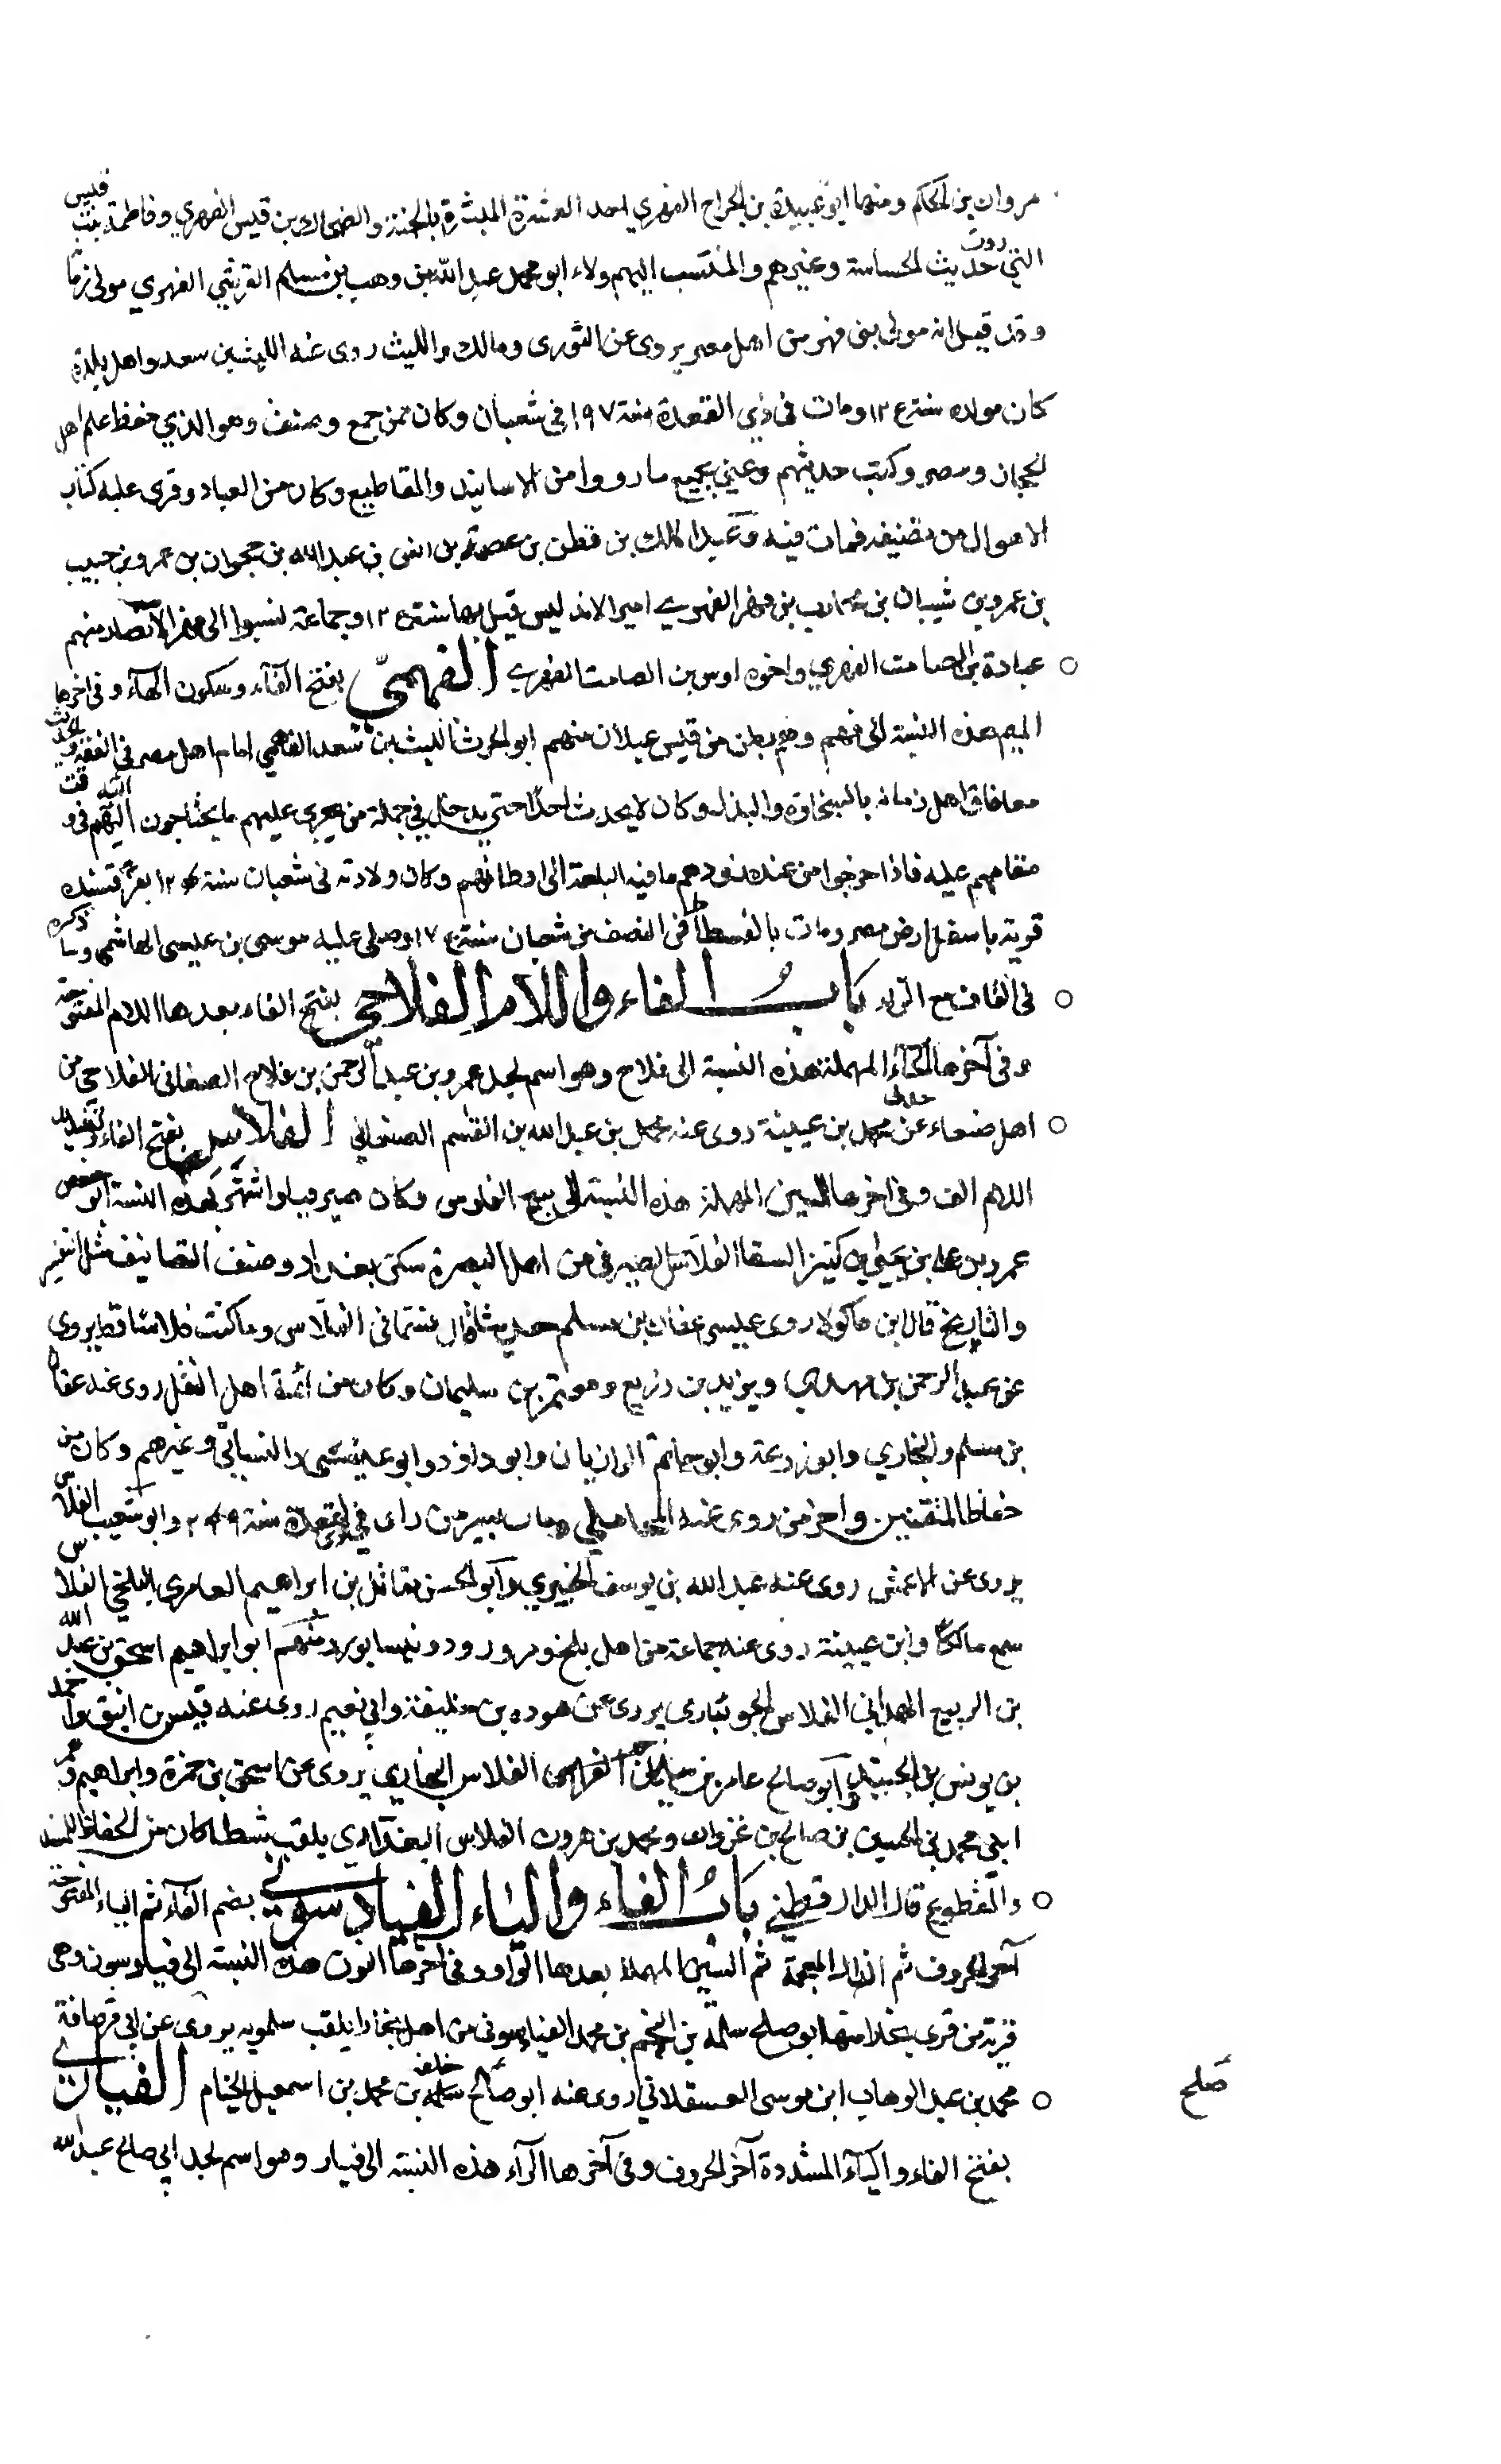 مروان بن الحكم ومنها ابو عبيدة بن الجراح الفهري احد العشرة المبشرة بالجنة والضحاك بن قيس الفهري وفاطمة بنت قيس
التي روت حديث الجساسة وغيرهم والمنتسب اليهم ولاء ابو محمد عبد الله بن وهب بن مسلم القرشي الفهري مولى
وقد قيل انه مولى بني فهر من اهل مصر يروى عن الثورى ومالك والليث روى عنه الليث بن سعد واهل بلده
كان مولده سنة ١٢٤ ومات في ذي القعدة سنة ١٩٧ في شعبان وكان ممن جمع وصنف وهو الذي حفظ علم اهل
الحجاز ومصر وكتب حديثهم وعني بجميع ما رووا من الاسانيد والمقاطيع وكان من العباد وقرى عليه كتاب
الاهوال من تصنيفه فمات فيه وعبد الملك بن قطن بن عصمة بن انس بن عبد الله بن جحوان بن عمرو بن حبيب
بن عمرو بن شيبان بن محارب بن فهر الفهري امير الاندلس قيل بها سنة ١٢٤ وجماعة نسبوا الى فهر الانصار منهم
عبادة بن الصامت الفهري واخوه اوس بن الصامت الفهري الفهمي بفتح الفآء وسكون الهآء وفي اخرها
الميم هذه النسبة الى فهم وهم بطن من قيس عيلان منهم ابو الحرث الليث بن سعد الفهمي امام اهل مصر في الفقه والحديث
معا فاق اهل زمانه بالسخاوة والبذل وكان لا يحدث احدا حتى يدخل في جملة من يجري عليهم ما يحتاجون اليه في وقت
مقامهم عليه فاذا خرجوا من عنده زودهم ما فيه البلغة الى اوطانهم وكان ولادته في شعبان سنة قشنده
قرية باسفل ارض مصر ومات بالفسطاط في النصف من شعبان سنة ١٧٤ وصلى عليه موسى بن عيسى الهاشمي وساذكره
في القاف مع باب الفاء واللام الفلاحي بفتح الفاء بعدها اللام المفتوحة
وفي آخرها الحآء المهملة هذه النسبة الى فلاح وهو اسم لجد عمرو بن عبد الرحمن بن فلاح الصنعاني الفلاحي من
اهل صنعاء عن محمد بن عيينة روى عنه محمد بن عبد الله بن القسم الصنعاني الفلاس بفتح الفاء وتشديد
اللام الف وفي اخرها السين المهملة هذه النسبة الى بيع الفلوس وكان صيرفيا واشتهر بهذه النسبة ابو حفص
عمرو بن على بن بحر بن كنيز السقا الفلاس الصيرفي من اهل البصرة سكن بغداد وصنف التصانيف مثل التفسير
والتاريخ قال ابن ماكولا روى عيسى عفان بن مسلم حديثا قال نسبتما في الفلاس وما كنت فلاسا قط يروي
عن عبد الرحمن بن مهدي ويزيد بن زريع ومعتمر بن سليمان وكان من ائمة اهل النقل روى عنه عفان
بن مسلم والبخاري وابو زرعة وابو حاتم الرازيان وابو داود وابو عيسى والنسائي وغيرهم وكان من
حفاظ المتقنين واخر من روى عنه المحاملي ومات بسر من راى في ذي القعدة سنة ٢٤٩ وابو شعيب الفلاس
يروى عن الاعمش روى عنه عبد الله بن يوسف الخيبري وابو الحسن مقاتل بن ابراهيم العامري البلخي الفلاس
سمع مالكا وابن عيينة روى عنه جماعة من اهل بلخ ومرورود ونيسابور ومنهم ابو ابراهيم اسحق بن عبد الله
بن الربيع الهمداني الفلاس الجويباري يروى عن هوذه بن خليفة وابي نعيم روى عنه قيس بن انيف واحمد
بن يونس بن الجنيد وابو صالح عامر بن الفلاس البخاري يروى عن اسحق بن حمزة وابراهيم بن
محمد بن الحسين بن صالح بن غزوان ومحمد بن هرون الفلاس البغدادي يلقب شيطا كان من الحفاظ للمسند
والمقطوع قال الدارقطني باب الفاء والياء الفياذسوني بضم الفآء ثم الياء المفتوحة
آخر الحروف ثم الذال المعجمة ثم السين المهملة بعدها الواو وفي آخرها النون هذه النسبة الى فياذسون وهى
قرية من قرى بخارا منها ابو صلح سلمة بن النجم بن محمد الفياذسوني من اهل بخارا يلقب سلمويه يروى عن ابي قرصافة
محمد بن عبد الوهاب ابن موسى العسقلاني روى عنه ابو صالح خلف بن محمد بن اسمعيل الخيام الفياري
بفتح الفاء والياء المشددة آخر الحروف وفي آخرها الرآء هذه النسبة الى فيار وهو اسم لجد ابي صالح عبد الله
صلح